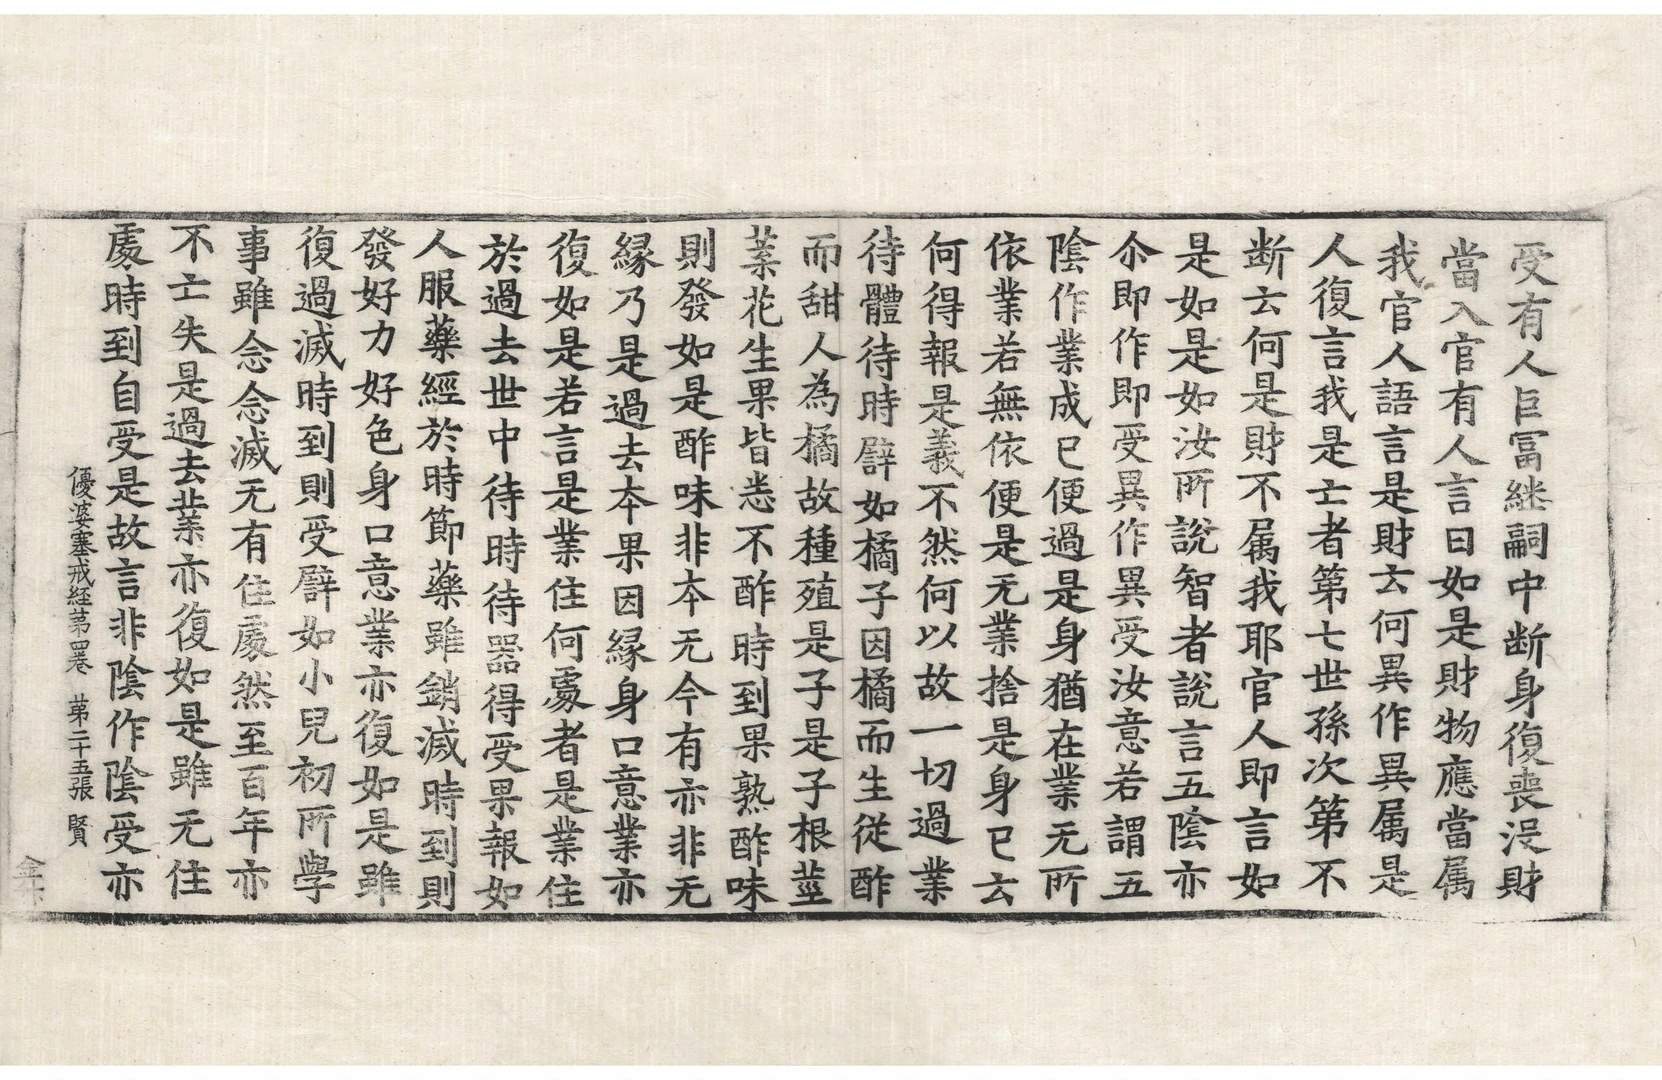 受有人巨冨継嗣中断身復喪没財
當入官有人言曰如是財物應當属
我官人語言是財云何異作異属是
人復言我是亡者第七世孫次第不
断云何是財不属我耶官人即言如
是如是如汝所說智者說言五陰亦
尒即作即受異作異受汝意若謂五
陰作業成已便過是身猶在業无所
依業若無依便是无業捨是身已云
何得報是義不然何以故一切過業
待體待時譬如橘子因橘而生従酢
而甜人為橘故種殖是子是子根莖
葉花生果皆悉不酢時到果熟酢味
則發如是酢味非本无今有亦非无
縁乃是過去夲果因縁身口意業亦
復如是若言是業住何處者是業住
於過去世中待時待器得受果報如
人服藥經於時節藥雖銷滅時到則
發好力好色身口意業亦復如是雖
復過滅時到則受譬如小兒初所學
事雖念念滅无有住處然至百年亦
不亡失是過去業亦復如是雖无住
處時到自受是故言非陰作陰受亦
優婆塞戒經苐四卷　苐二十五張　賢